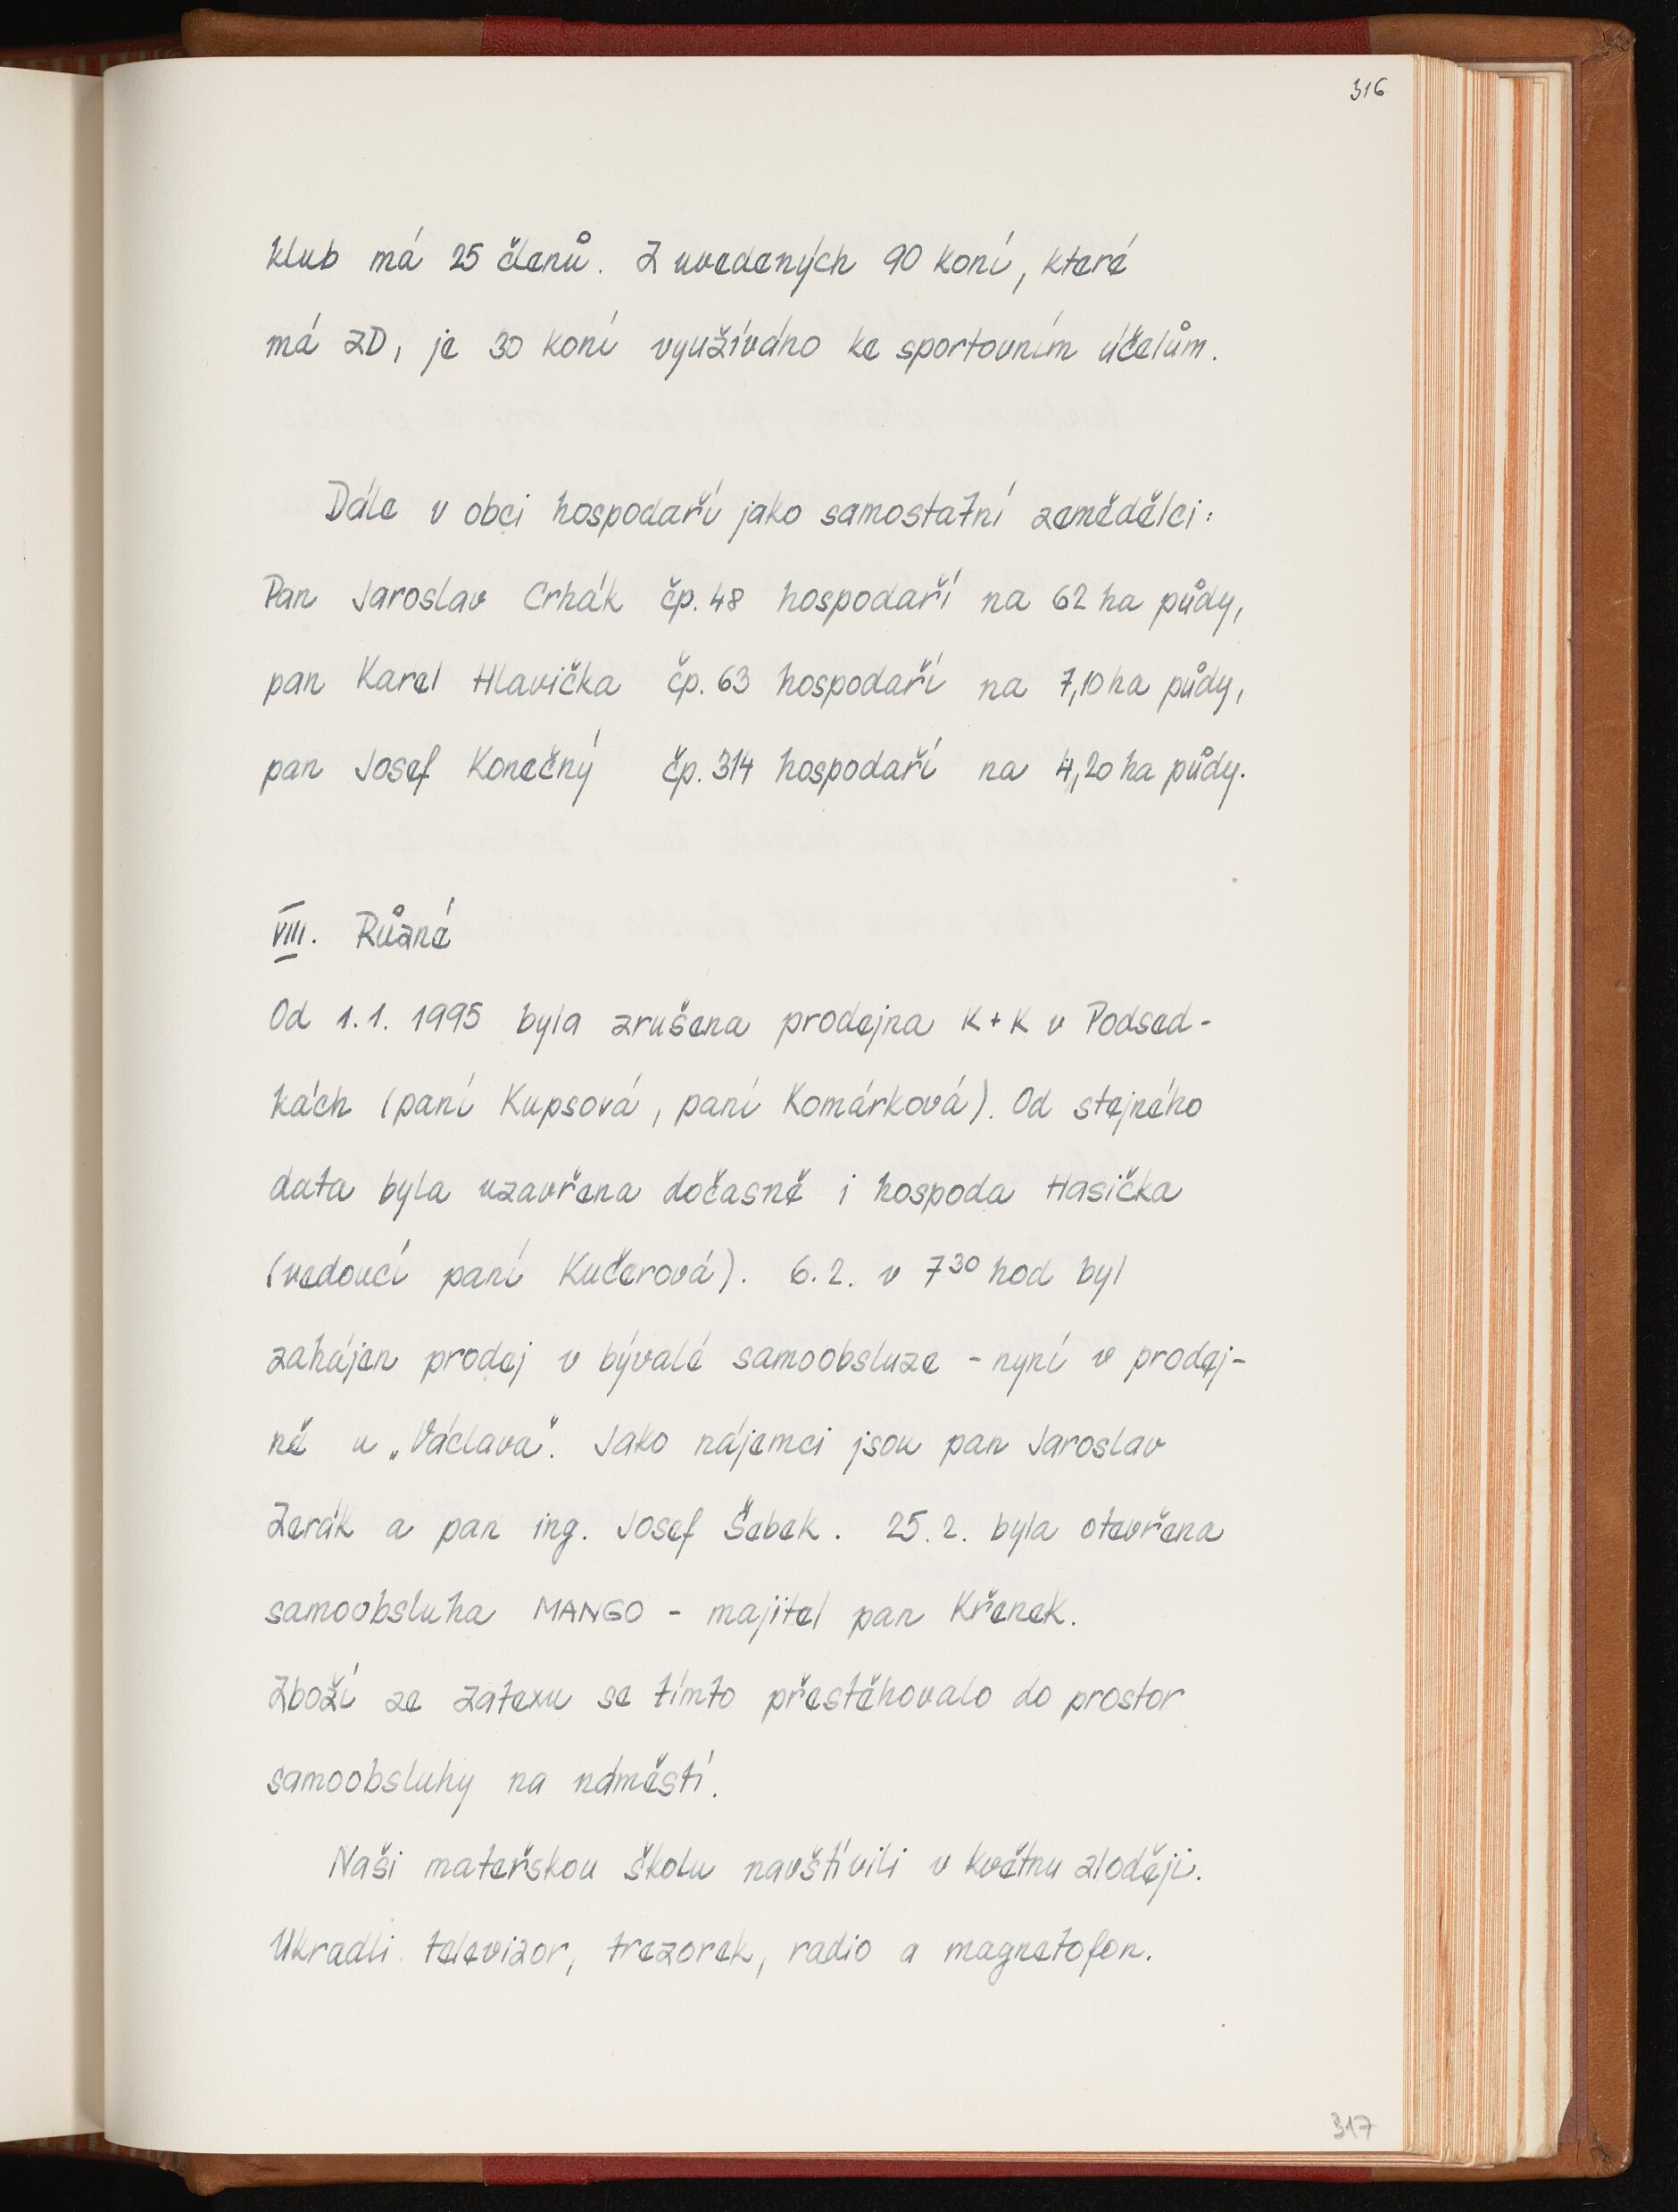 316
klub má 25 členů. Z uvedených 90 koní, které
má ZD, je 30 koní využíváno ke sportovním účelům.
Dále v obci hospodaří jako samostatní zemědělci:
Pan Jaroslav Crhák čp. 48 hospodaří na 62 ha půdy,
pan Karel Hlavička čp. 63 hospodaří na 7,10 ha půdy,
pan Josef Konečný čp. 314 hospodaří na 4,20 ha půdy.
VIII. Různé
Od 1.1. 1995 byla zrušena prodejna K+K v Podsed-
kách (paní Kupsová, paní Komárková). Od stejného
data byla uzavřena dočasně i hospoda Hasička
(vedoucí paní Kučerová). 6.2. v 7³⁰ hod byl
zahájen prodej v bývalé samoobsluze - nyní v prodej-
ně u „Václava“. Jako nájemci jsou pan Jaroslav
Zerák a pan ing. Josef Šebek. 25.2. byla otevřena
samoobsluha MANGO - majitel pan Křenek.
Zboží ze Zátexu se tímto přestěhovalo do prostor
samoobsluhy na náměstí.
Naši mateřskou školu navštívili v květnu zloději.
Ukradli televizor, trezorek, radio a magnetofon.
317